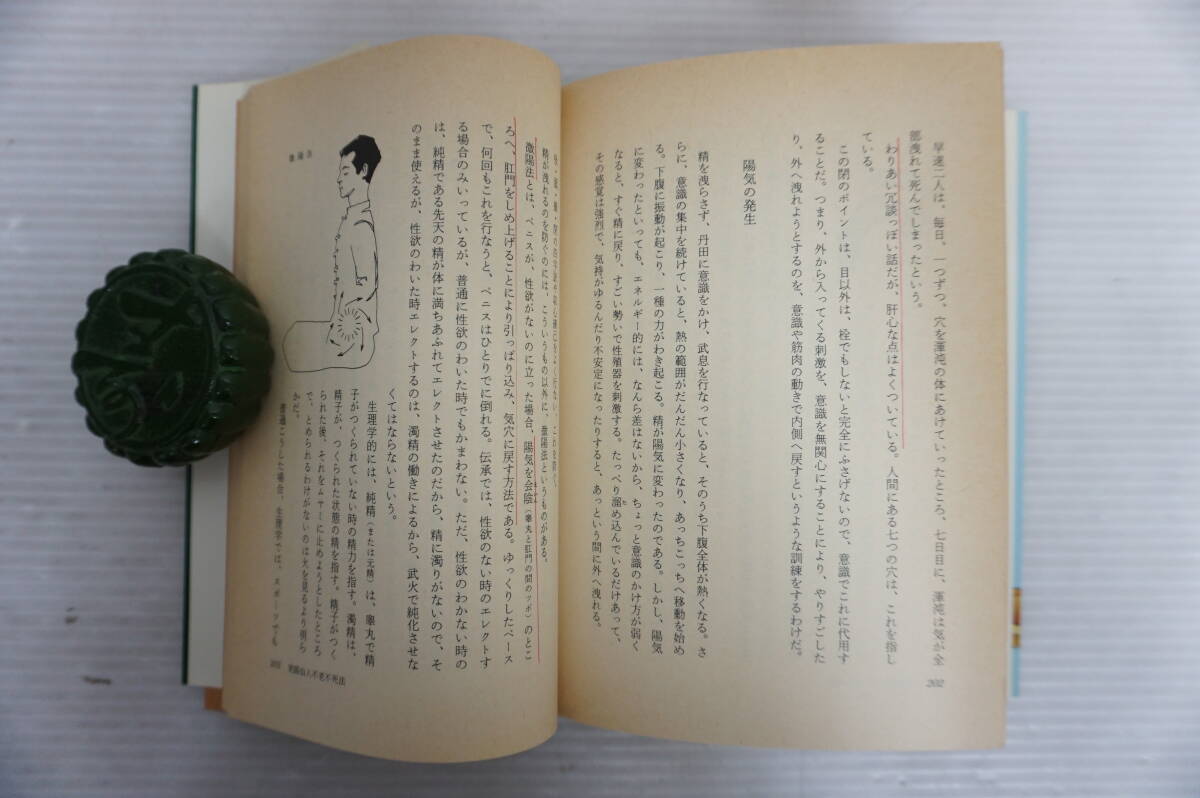 早速二人は、毎日、一つずつ、穴を渾沌の体にあけていったところ、七日目に、渾沌は気が全
部洩れて死んでしまったという。
わりあい冗談っぽい話だが、肝心な点はよくついている。人間にある七つの穴は、これを指し
ている。
この閉のポイントは、目以外は、栓でもしないと完全にふさげないので、意識でこれに代用す
ることだ。つまり、外から入ってくる刺激を、意識を無関心にすることにより、やりすごした
り、外へ洩れようとするのを、意識や筋肉の動きで内側へ戻すというような訓練をするわけだ。
陽気の発生
精を洩らさず、丹田に意識をかけ、武息を行なっていると、そのうち下腹全体が熱くなる。さ
らに、意識の集中を続けていると、熱の範囲がだんだん小さくなり、あっちこっちへ移動を始め
る。下腹に振動が起こり、一種の力がわき起こる。精が陽気に変わったのである。しかし、陽気
に変わったといっても、エネルギー的には、なんら差はないから、ちょっと意識のかけ方が弱く
なると、すぐ精に戻り、すごい勢いで性殖器を刺激する。たっぷり溜め込んでいるだけあって、
その感覚は強烈で、気持がゆるんだり不安定になったりすると、あっという間に外へ洩れる。
202
精が洩れるのを防ぐのには、こういうもの以外に、撤陽法というものがある。
撤陽法とは、ペニスが、性欲がないのに立った場合、陽気を会陰（睾丸と肛門の間のツボ）のとこ
ろへ、肛門をしめ上げることにより引っぱり込み、気穴に戻す方法である。ゆっくりしたペース
で、何回もこれを行なうと、ペニスはひとりでに倒れる。伝承では、性欲のない時のエレクトす
る場合のみいっているが、普通に性欲のわいた時でもかまわない。ただ、性欲のわかない時の
は、純精である先天の精が体に満ちあふれてエレクトさせたのだから、精に濁りがないので、そ
のまま使えるが、性欲のわいた時エレクトするのは、濁精の働きによるから、武火で純化させな
くてはならないという。
生理学的には、純精（または元精）は、睾丸で精
子がつくられていない時の精力を指す。濁精は、
精子が、つくられた状態の精を指す。精子がつく
られた後、それをムヤミに止めようとしたところ
で、とめられるわけがないのは火を見るより明ら
かだ。
普通こうした場合、生理学では、スポーツでも
撤陽法
203